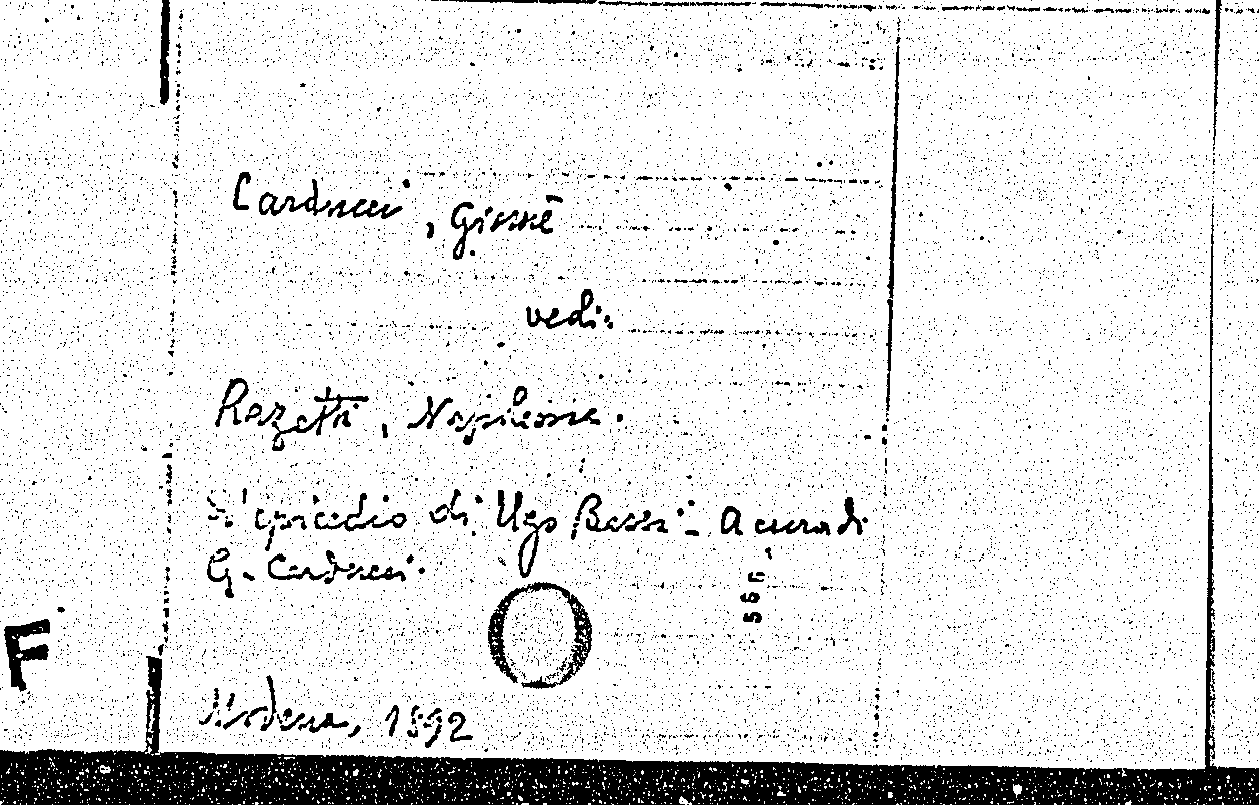 Carducci, Giosuè
vedi:
Razetti, Napoleone.
L'epicedio di Ugo Bassi - A cura di
G. Carducci.
Modena, 1892
F